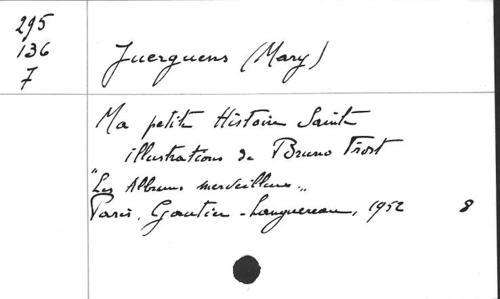 295
136
7
Juerguens (Mary)
Ma petite Histoire Sainte
illustrations de Bruno Frost
"Les Albums merveilleux"
Paris, Gautier-Languereau, 1952 8